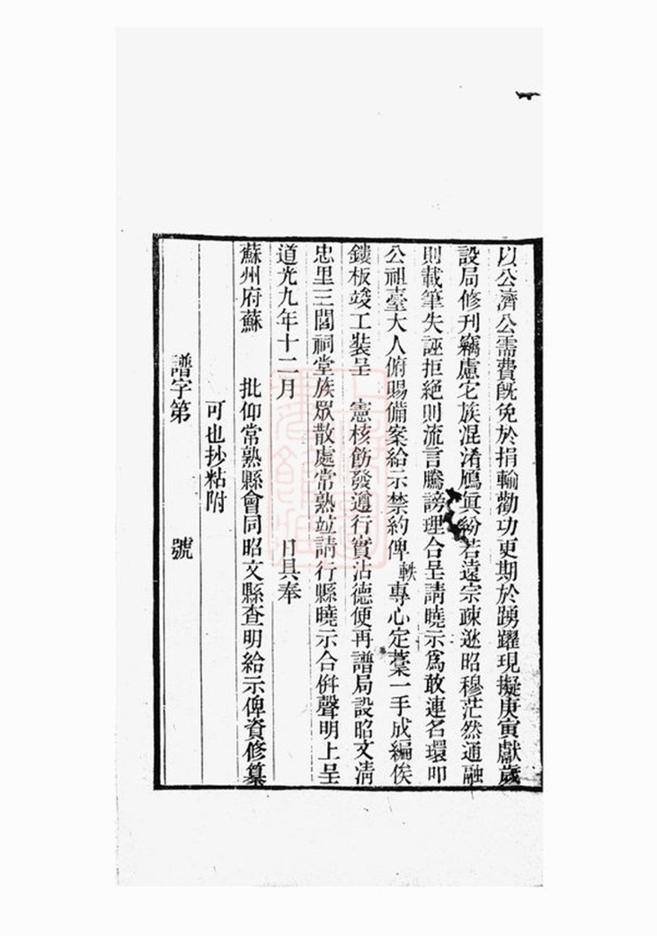 以公濟公需費旣免於捐輸勸功更期於踴躍現擬庚寅獻歲
設局修刊竊慮它族混淆鴈眞紛若遠宗疎逖昭穆茫然通融
則載筆失誣拒絕則流言騰謗理合呈請曉示爲敢連名環叩
公祖臺大人俯賜備案給示禁約俾軼專心定藁一手成編俟
鏤板竣工裝呈 憲核飭發遵行實沾德便再譜局設昭文淸
忠里三閭祠堂族眾散處常熟竝請行縣曉示合併聲明上呈
道光九年十二月 日具奉
蘇州府蘇 批仰常熟縣會同昭文縣查明給示俾資修纂
可也抄粘附
譜字第 號